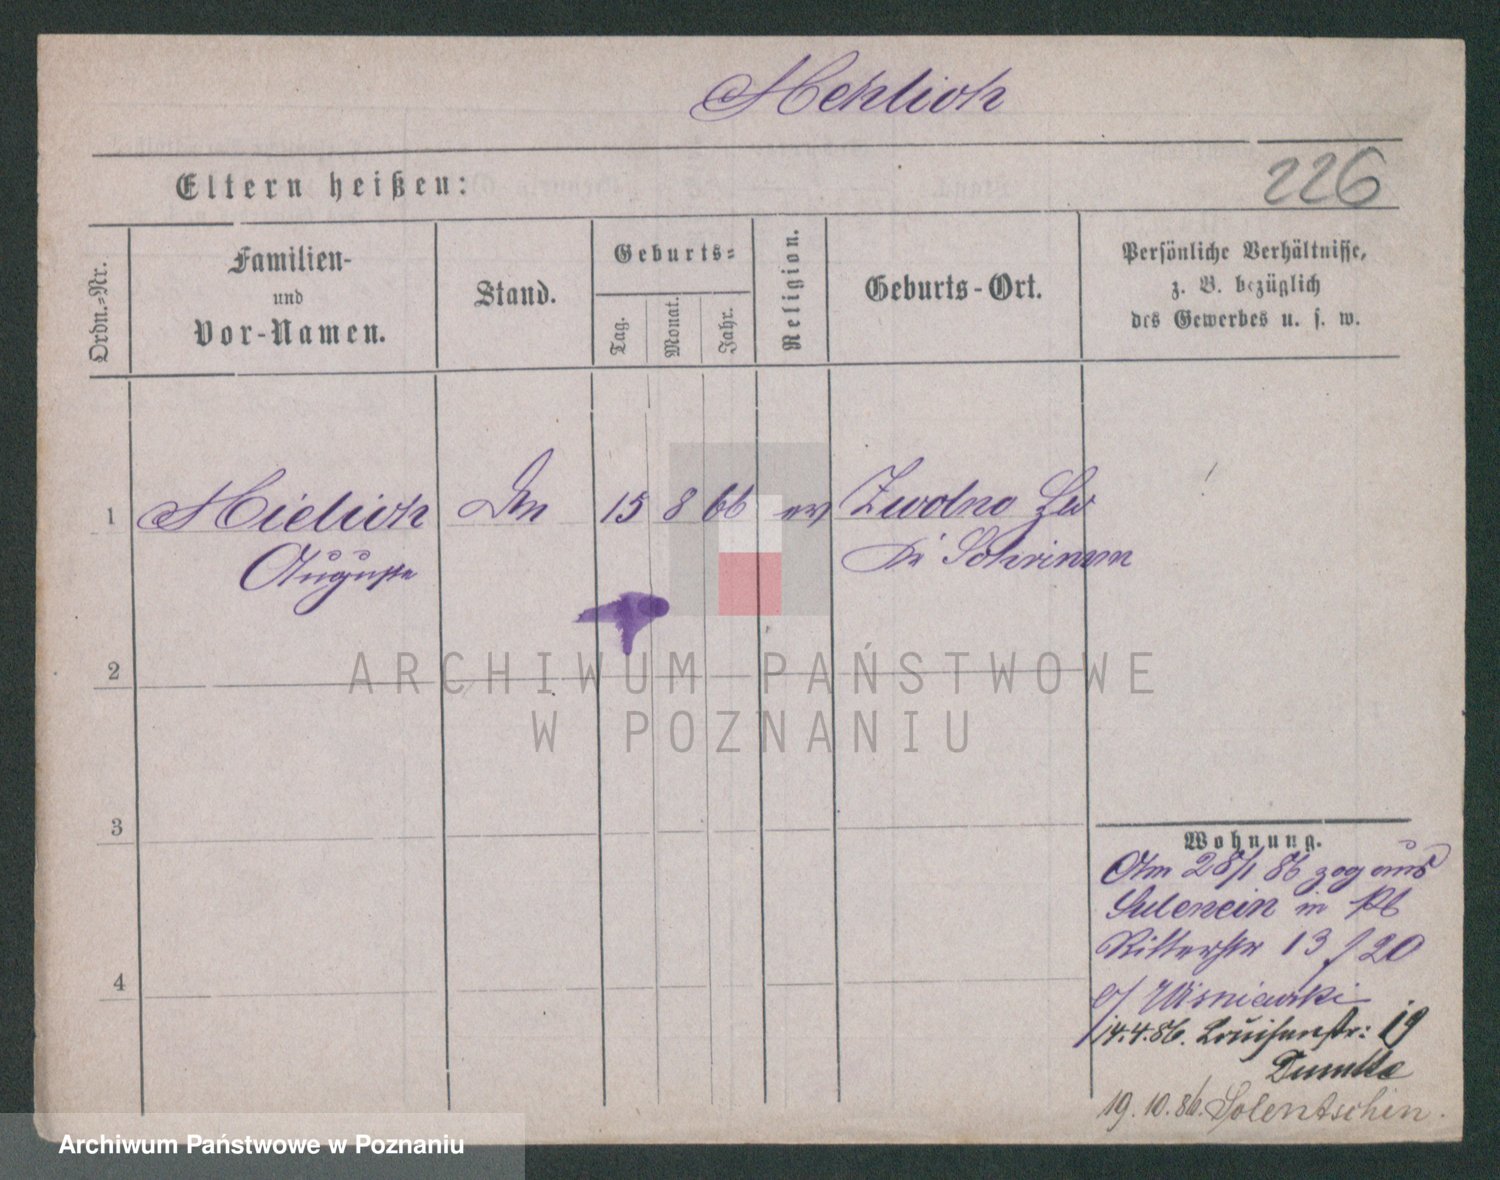 Mehlich
226
Eltern heißen:
Ordn.=Nr.
Familien-
und
Vor-Namen.
Stand.
Geburts=
Tag.
Monat.
Jahr.
Religion.
Geburts-Ort.
Persönliche Verhältnisse,
z. B. bezüglich
des Gewerbes u. s. w.
1
Mielich
Auguste
15
8
66
ev
Zwolno
Schrimm
2
ARCHIWUM PAŃSTWOWE
W POZNANIU
3
Wohnung.
Am 28/1 86 zog aus
in
Ritterstr 13 20
Wisniewski
14.4.86. Louisenstr: 19
19.10.86. Solentschin.
4
Archiwum Państwowe w Poznaniu